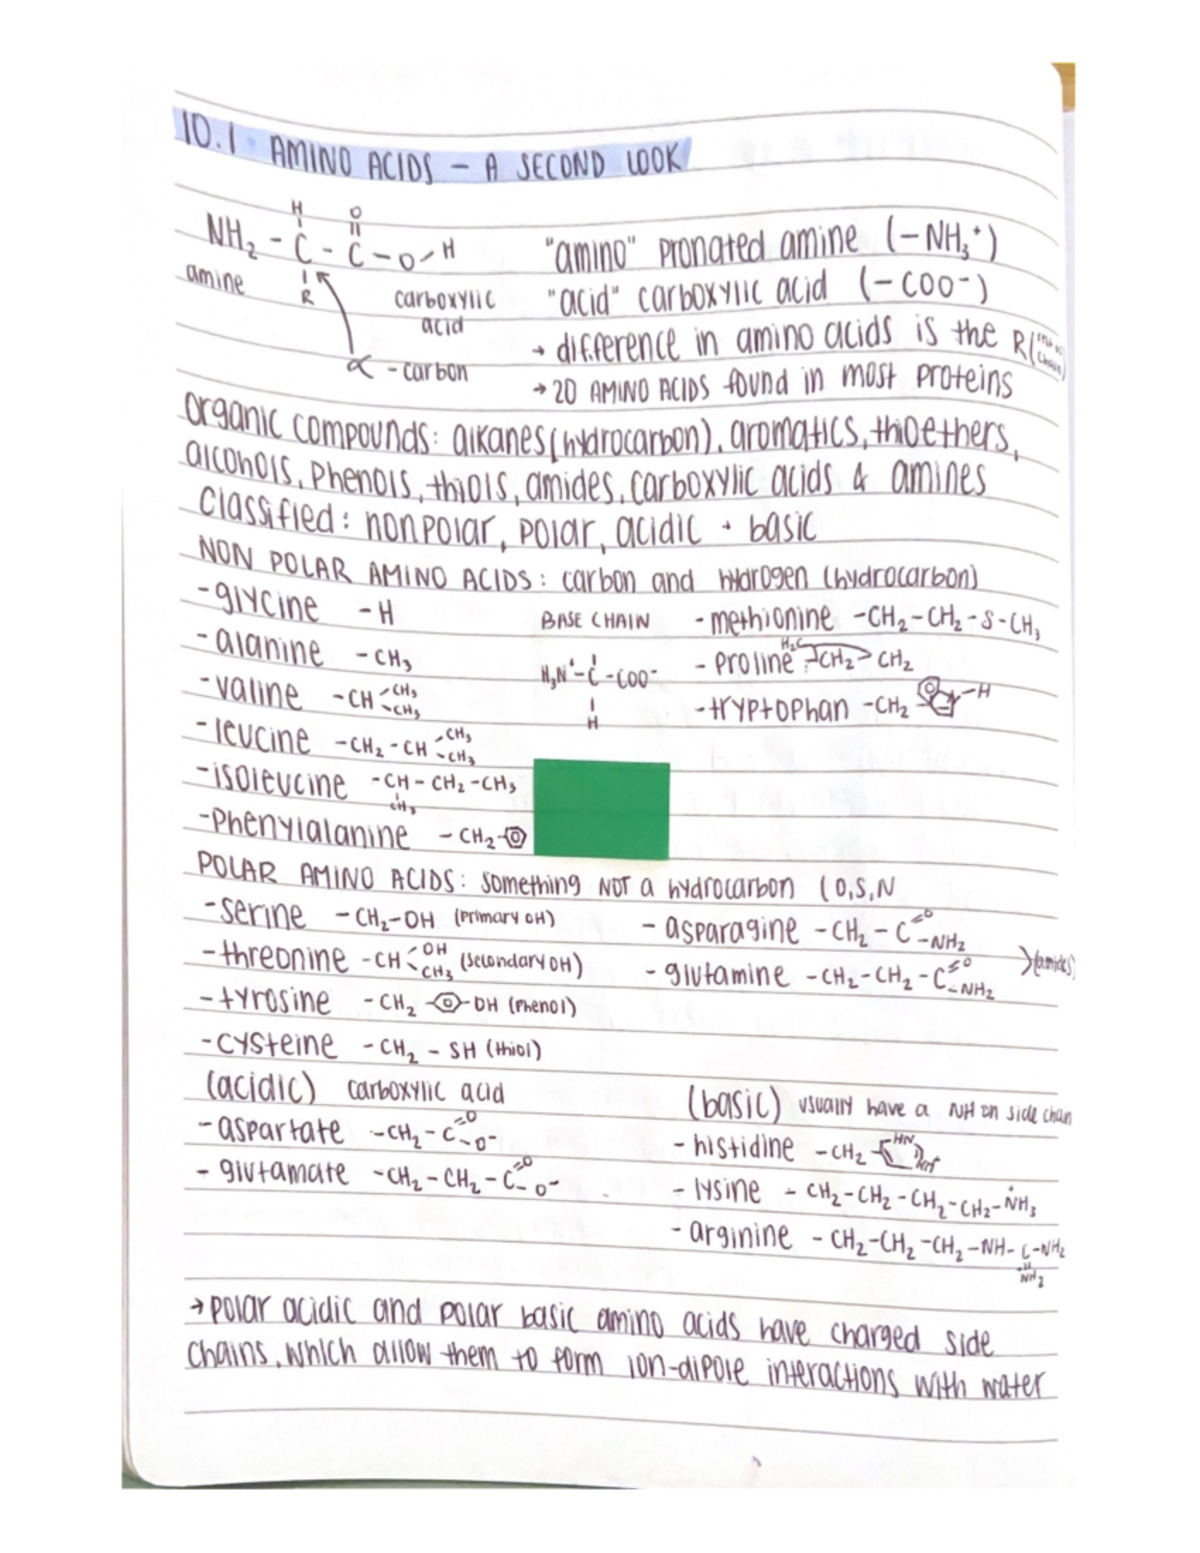 10.1 AMINO ACIDS - A SECOND LOOK
H O
NH₂ - C - C - O - H
R
amine
carboxylic
acid
α - carbon
"amino" pronated amine (-NH₃⁺)
"acid" carboxylic acid (-COO⁻)
→ difference in amino acids is the R(
→ 20 AMINO ACIDS found in most proteins
organic compounds: alkanes(hydrocarbon), aromatics, thioethers,
alcohols, phenols, thiols, amides, carboxylic acids & amines
Classified: nonpolar, polar, acidic + basic
NON POLAR AMINO ACIDS: carbon and hydrogen (hydrocarbon)
-glycine -H
-alanine -CH₃
-valine -CH CH₃ CH₃
-leucine -CH₂-CH CH₃ CH₃
-isoleucine -CH-CH₂-CH₃
CH₃
-phenylalanine -CH₂-
BASE CHAIN
H₃N⁺-C-COO⁻
H
-methionine -CH₂-CH₂-S-CH₃
-proline H₂C CH₂ CH₂
-tryptophan -CH₂ -H
POLAR AMINO ACIDS: something NOT a hydrocarbon (O,S,N
-serine -CH₂-OH (primary OH)
-threonine -CH OH CH₃ (secondary OH)
-tyrosine -CH₂ -OH (phenol)
-cysteine -CH₂ - SH (thiol)
- asparagine -CH₂-C=O -NH₂
- glutamine -CH₂-CH₂-C=O -NH₂
(amides)
(acidic) carboxylic acid
-aspartate -CH₂-C=O -O⁻
- glutamate -CH₂-CH₂-C=O -O⁻
(basic) usually have a NH on side chan
- histidine -CH₂ HN
- lysine - CH₂-CH₂-CH₂-CH₂-NH₃
- arginine - CH₂-CH₂-CH₂-NH-C-NH₂
NH₂
→ polar acidic and polar basic amino acids have charged side
chains, which allow them to form ion-dipole interactions with water